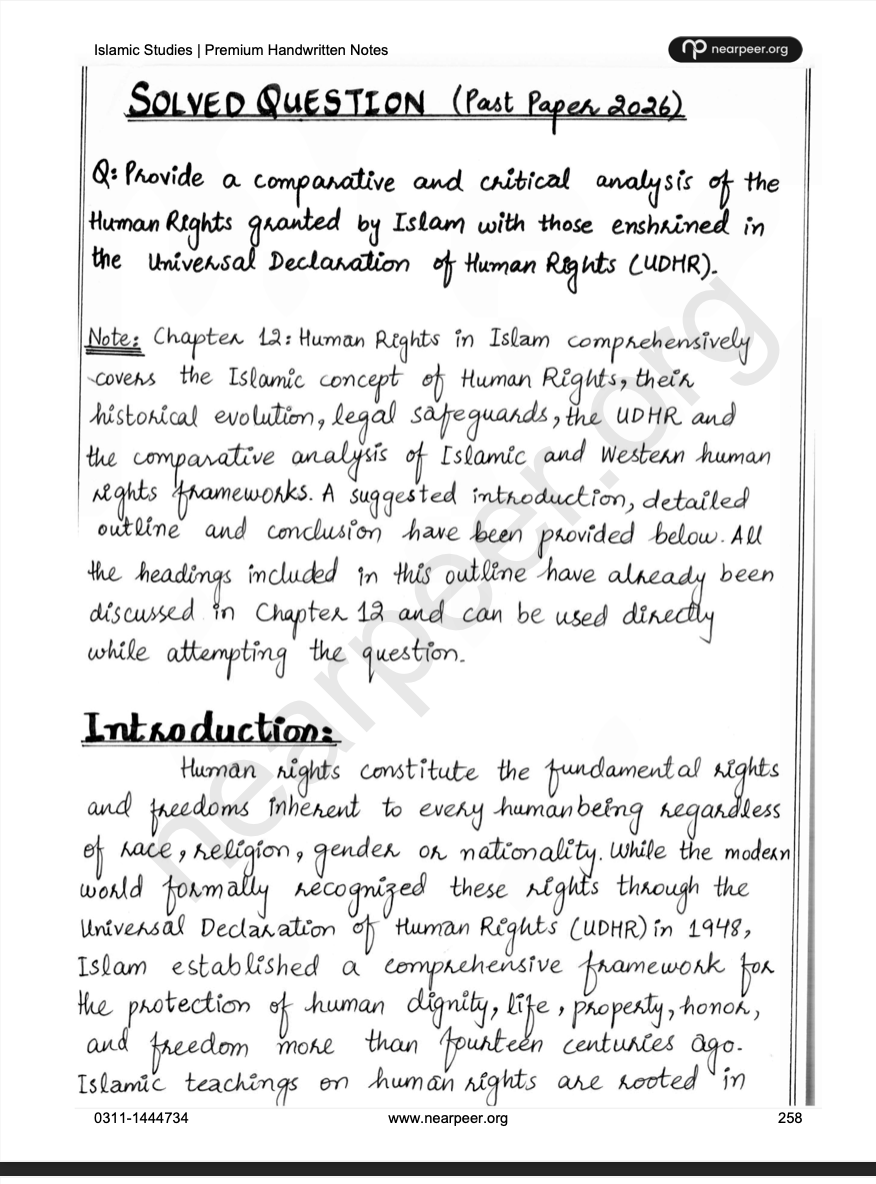 Islamic Studies | Premium Handwritten Notes
nearpeer.org
SOLVED QUESTION (Past Paper 2026)
Q: Provide a comparative and critical analysis of the
Human Rights granted by Islam with those enshrined in
the Universal Declaration of Human Rights (UDHR).
Note: Chapter 12: Human Rights in Islam comprehensively
covers the Islamic concept of Human Rights, their
historical evolution, legal safeguards, the UDHR and
the comparative analysis of Islamic and Western human
rights frameworks. A suggested introduction, detailed
outline and conclusion have been provided below. All
the headings included in this outline have already been
discussed in Chapter 12 and can be used directly
while attempting the question.
Introduction:
Human rights constitute the fundamental rights
and freedoms inherent to every human being regardless
of race, religion, gender or nationality. While the modern
world formally recognized these rights through the
Universal Declaration of Human Rights (UDHR) in 1948,
Islam established a comprehensive framework for
the protection of human dignity, life, property, honor,
and freedom more than fourteen centuries ago.
Islamic teachings on human rights are rooted in
nearpeer.org
0311-1444734
www.nearpeer.org
258